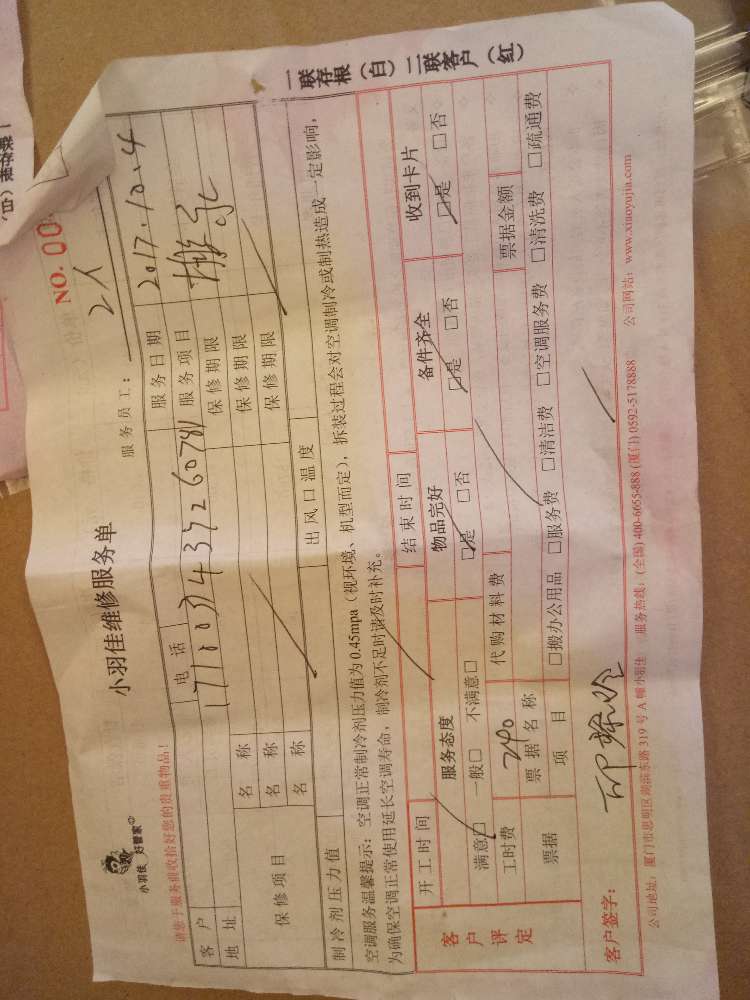 小羽佳
好管家
小羽佳维修服务单
NO. 00
请您于服务前收拾好您的贵重物品!
服务员工: 2人
客户 电话 服务日期 2017.10.4
地址 服务项目 搬家
保修项目 名称 保修期限
名称 保修期限
名称 保修期限
制冷剂压力值 出风口温度
空调服务温馨提示: 空调正常制冷剂压力值为0.45mpa(视环境、机型而定), 拆装过程会对空调制冷或制热造成一定影响,
为确保空调正常使用延长空调寿命, 制冷剂不足时请及时补充。
一联存根(白) 二联客户(红)
客户评定 开工时间 结束时间
服务态度 物品完好 备件齐全 收到卡片
满意□ 一般□ 不满意□ □是 □否 □是 □否 □是 □否
工时费 240 代购材料费
票据 票据名称 票据金额
项目 □搬办公用品 □服务费 □清洁费 □空调服务费 □清洗费 □疏通费
客户签字:
公司地址: 厦门市思明区湖滨东路319号A幢小羽佳 服务热线: (全国) 400-6655-888 (厦门) 0592-5178888 公司网站: www.xiaoyujia.com